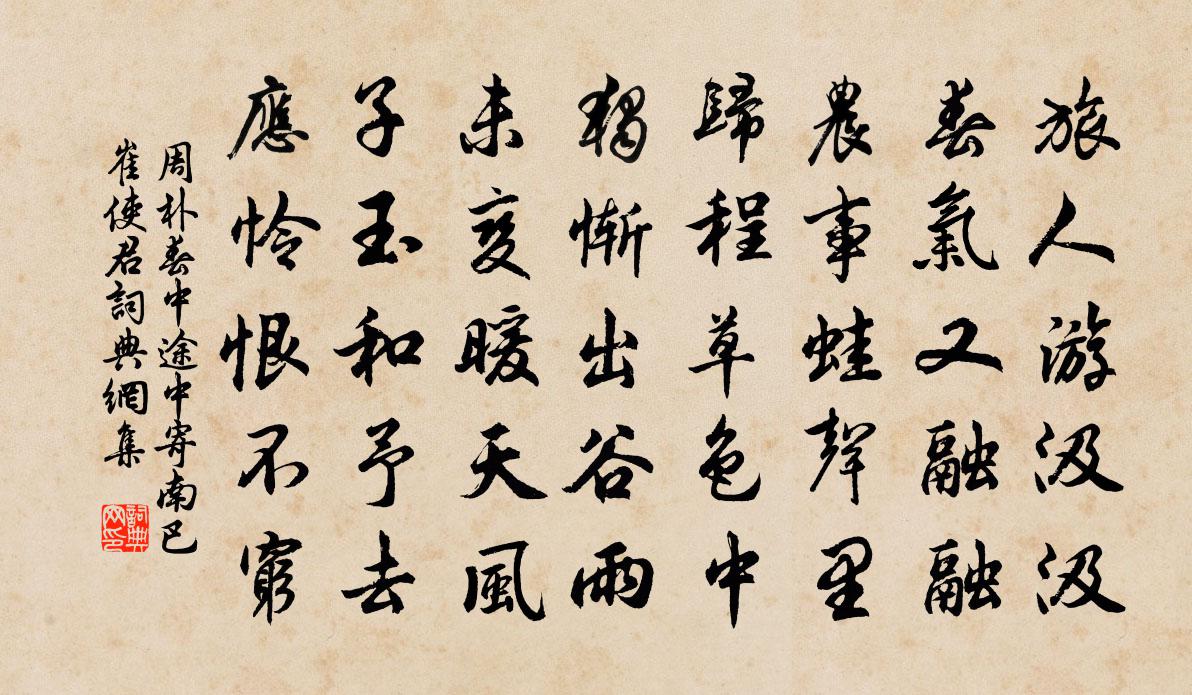 旅人游汲汲
春氣又融融
農事蛙聲里
歸程草色中
獨慚出谷雨
未變暖天風
子玉和予去
應怜恨不窮
周朴春中途中寄南巴
崔使君詞典網集
詞典网印